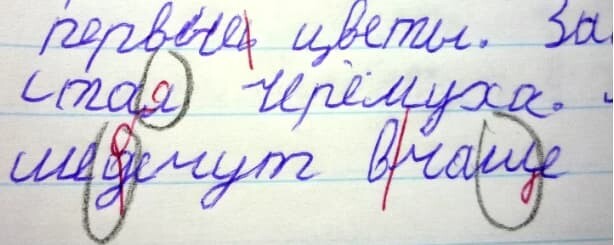 первые цветы. За
стая черёмуха.
шепчут в чаще